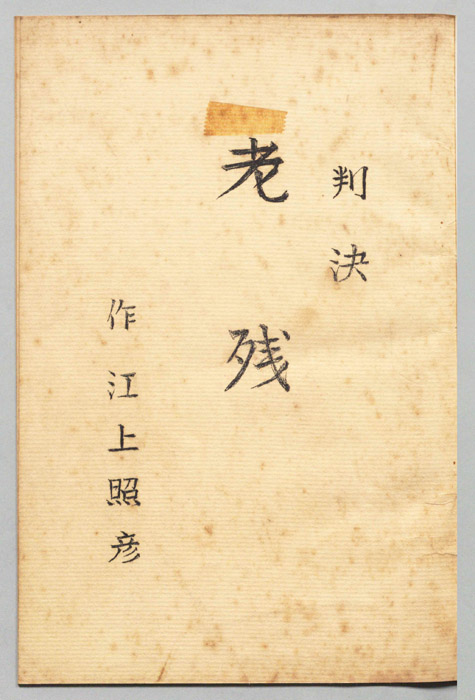 判決
老残
作 江上照彦